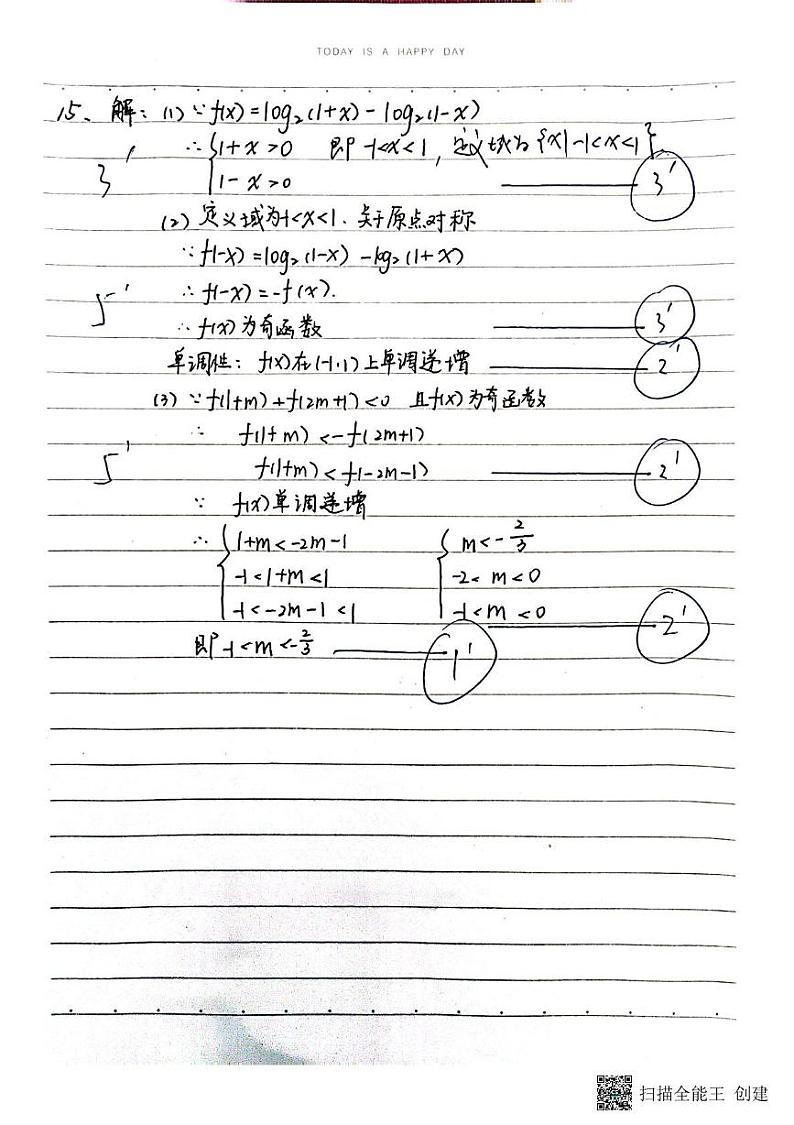 TODAY IS A HAPPY DAY
15、解：(1) ∵ f(x)=log₂(1+x)-log₂(1-x)
3' ∴ {1+x>0 即-1<x<1, 定义域为{x|-1<x<1}
1-x>0 3'
(2) 定义域为-1<x<1. 关于原点对称
∵ f(-x)=log₂(1-x)-log₂(1+x)
5' ∴ f(-x)=-f(x).
∴ f(x)为奇函数 3'
单调性: f(x)在(-1,1)上单调递增 2'
(3) ∵ f(1+m)+f(2m+1)<0 且f(x)为奇函数
∴ f(1+m)<-f(2m+1)
5' f(1+m)<f(-2m-1) 2'
∵ f(x)单调递增
∴ {1+m<-2m-1 {m<-2/3
-1<1+m<1 -2<m<0
-1<-2m-1<1 -1<m<0 2'
即-1<m<-2/3 1'
扫描全能王 创建